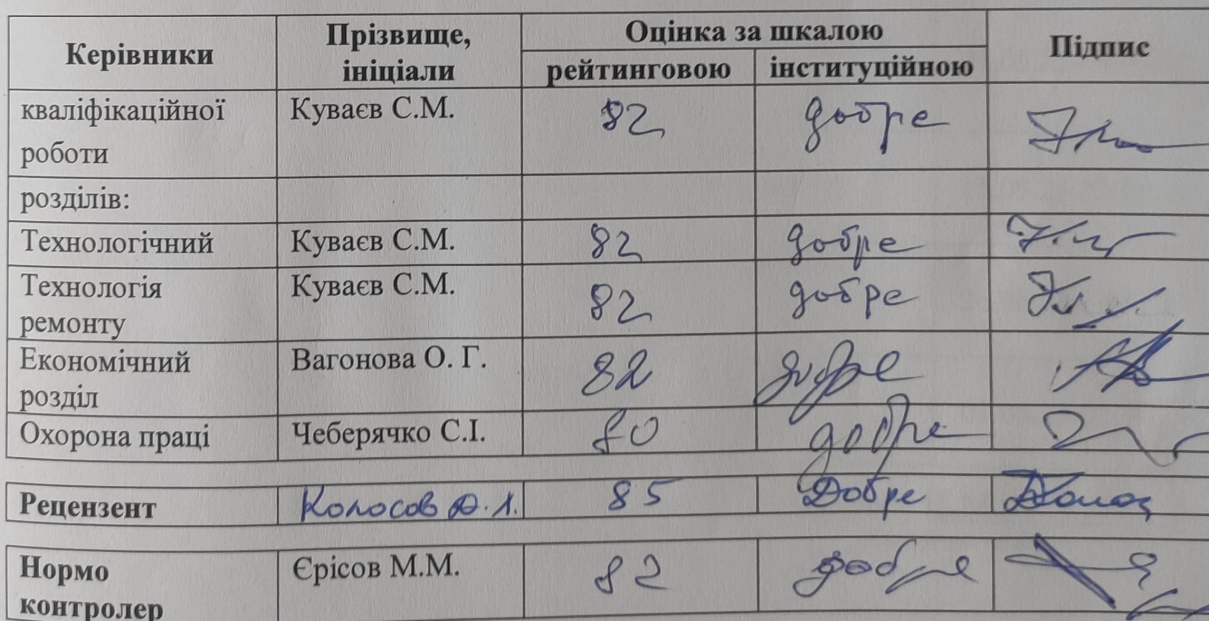 Керівники Прізвище, ініціали Оцінка за шкалою Підпис
рейтинговою інституційною
кваліфікаційної роботи Куваєв С.М. 82 добре
розділів:
Технологічний Куваєв С.М. 82 добре
Технологія ремонту Куваєв С.М. 82 добре
Економічний розділ Вагонова О. Г. 82 добре
Охорона праці Чеберячко С.І. 80 добре
Рецензент Колосов Д.Л. 85 Добре
Нормо контролер Єрісов М.М. 82 добре